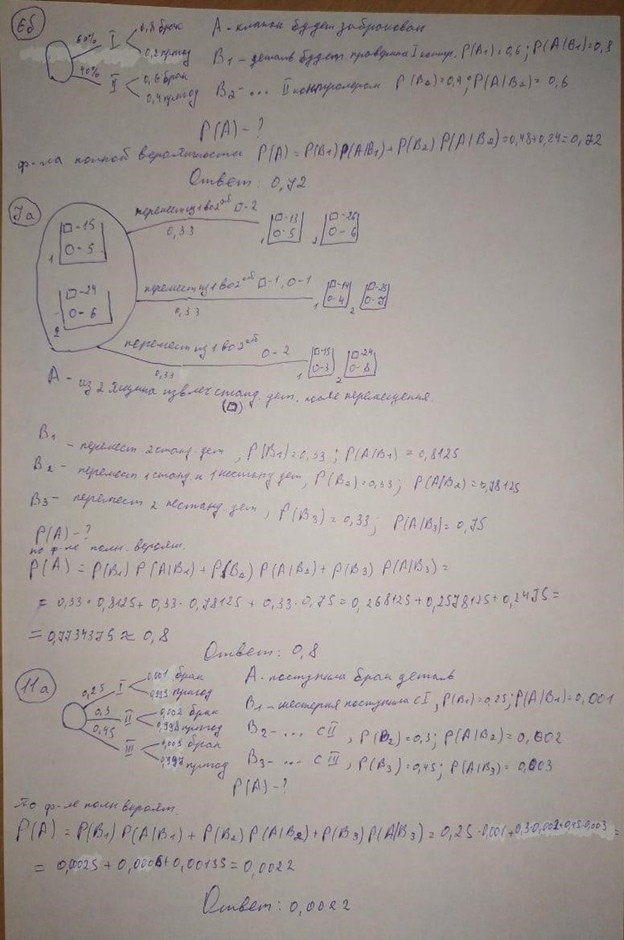 6б
60% I 0,8 брак
0,2 пригод
40% II 0,6 брак
0,4 пригод
A - будет забракован
B1 - деталь будет проверена I контр. P(B1)=0,6; P(A|B1)=0,8
B2 - ... II контролером P(B2)=0,4; P(A|B2)=0,6
P(A) - ?
ф-ла полной вероятности P(A) = P(B1)P(A|B1) + P(B2)P(A|B2)=0,48+0,24=0,72
Ответ: 0,72
7а
1 □-15
O-5
2 □-24
O-6
перемест из 1 во 2ой □-2
0,33
1 □-13
O-5
2 □-26
O-6
перемест из 1 во 2ой □-1, O-1
0,33
1 □-14
O-4
2 □-25
O-7
перемест из 1 во 2ой O-2
0,33
1 □-15
O-3
2 □-24
O-8
A - из 2 ящика извлеч станд. дет. после перемещения.
(□)
B1 - перемест 2 станд. дет, P(B1)=0,33; P(A|B1)=0,8125
B2 - перемест 1 станд. и 1 нестанд дет, P(B2)=0,33; P(A|B2)=0,78125
B3 - перемест 2 нестанд. дет, P(B3)=0,33; P(A|B3)=0,75
P(A) - ?
по ф-ле полн. вероят.
P(A) = P(B1) P(A|B1) + P(B2) P(A|B2) + P(B3) P(A|B3) =
= 0,33·0,8125+0,33·0,78125+0,33·0,75=0,268125+0,2578125+0,2475=
=0,7734375≈0,8
Ответ: 0,8
11а
0,25 I 0,001 брак
0,999 пригод
0,3 II 0,002 брак
0,998 пригод
0,45 III 0,003 брак
0,997 пригод
A - поступила брак деталь
B1 - шестерня поступила с I, P(B1)=0,25; P(A|B1)=0,001
B2 - ... с II, P(B2)=0,3; P(A|B2)=0,002
B3 - ... с III, P(B3)=0,45; P(A|B3)=0,003
P(A) - ?
по ф-ле полн вероят
P(A) = P(B1) P(A|B1) + P(B2) P(A|B2) + P(B3) P(A|B3) = 0,25·0,001+0,3·0,002+0,45·0,003 =
= 0,00025+0,0006+0,00135=0,0022
Ответ: 0,0022